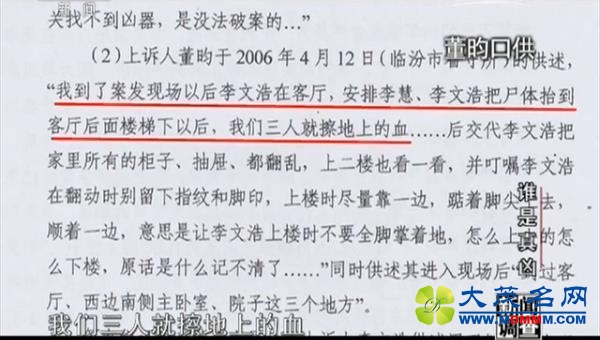 新闻
关找不到凶器，是没法破案的…”
董昀口供
（2）上诉人董昀于2006年4月12日（临汾市看守所）的供述，
“我到了案发现场以后李文浩在客厅，安排李慧、李文浩把尸体抬到
客厅后面楼梯下以后，我们三人就擦地上的血……后交代李文浩把
家里所有的柜子、抽屉、都翻乱，上二楼也看一看，并叮嘱李文浩
在翻动时别留下指纹和脚印，上楼时尽量靠一边，踮着脚尖 去，
顺着一边，意思是让李文浩上楼时不要全脚掌着地，怎么上 的怎
么下楼，原话是什么记不清了……”同时供述其进入现场后“ 过客
厅、西边南侧主卧室、院子这三个地方”。
谁是真凶
新闻
调查
我们三人就擦地上的血
大茂名网